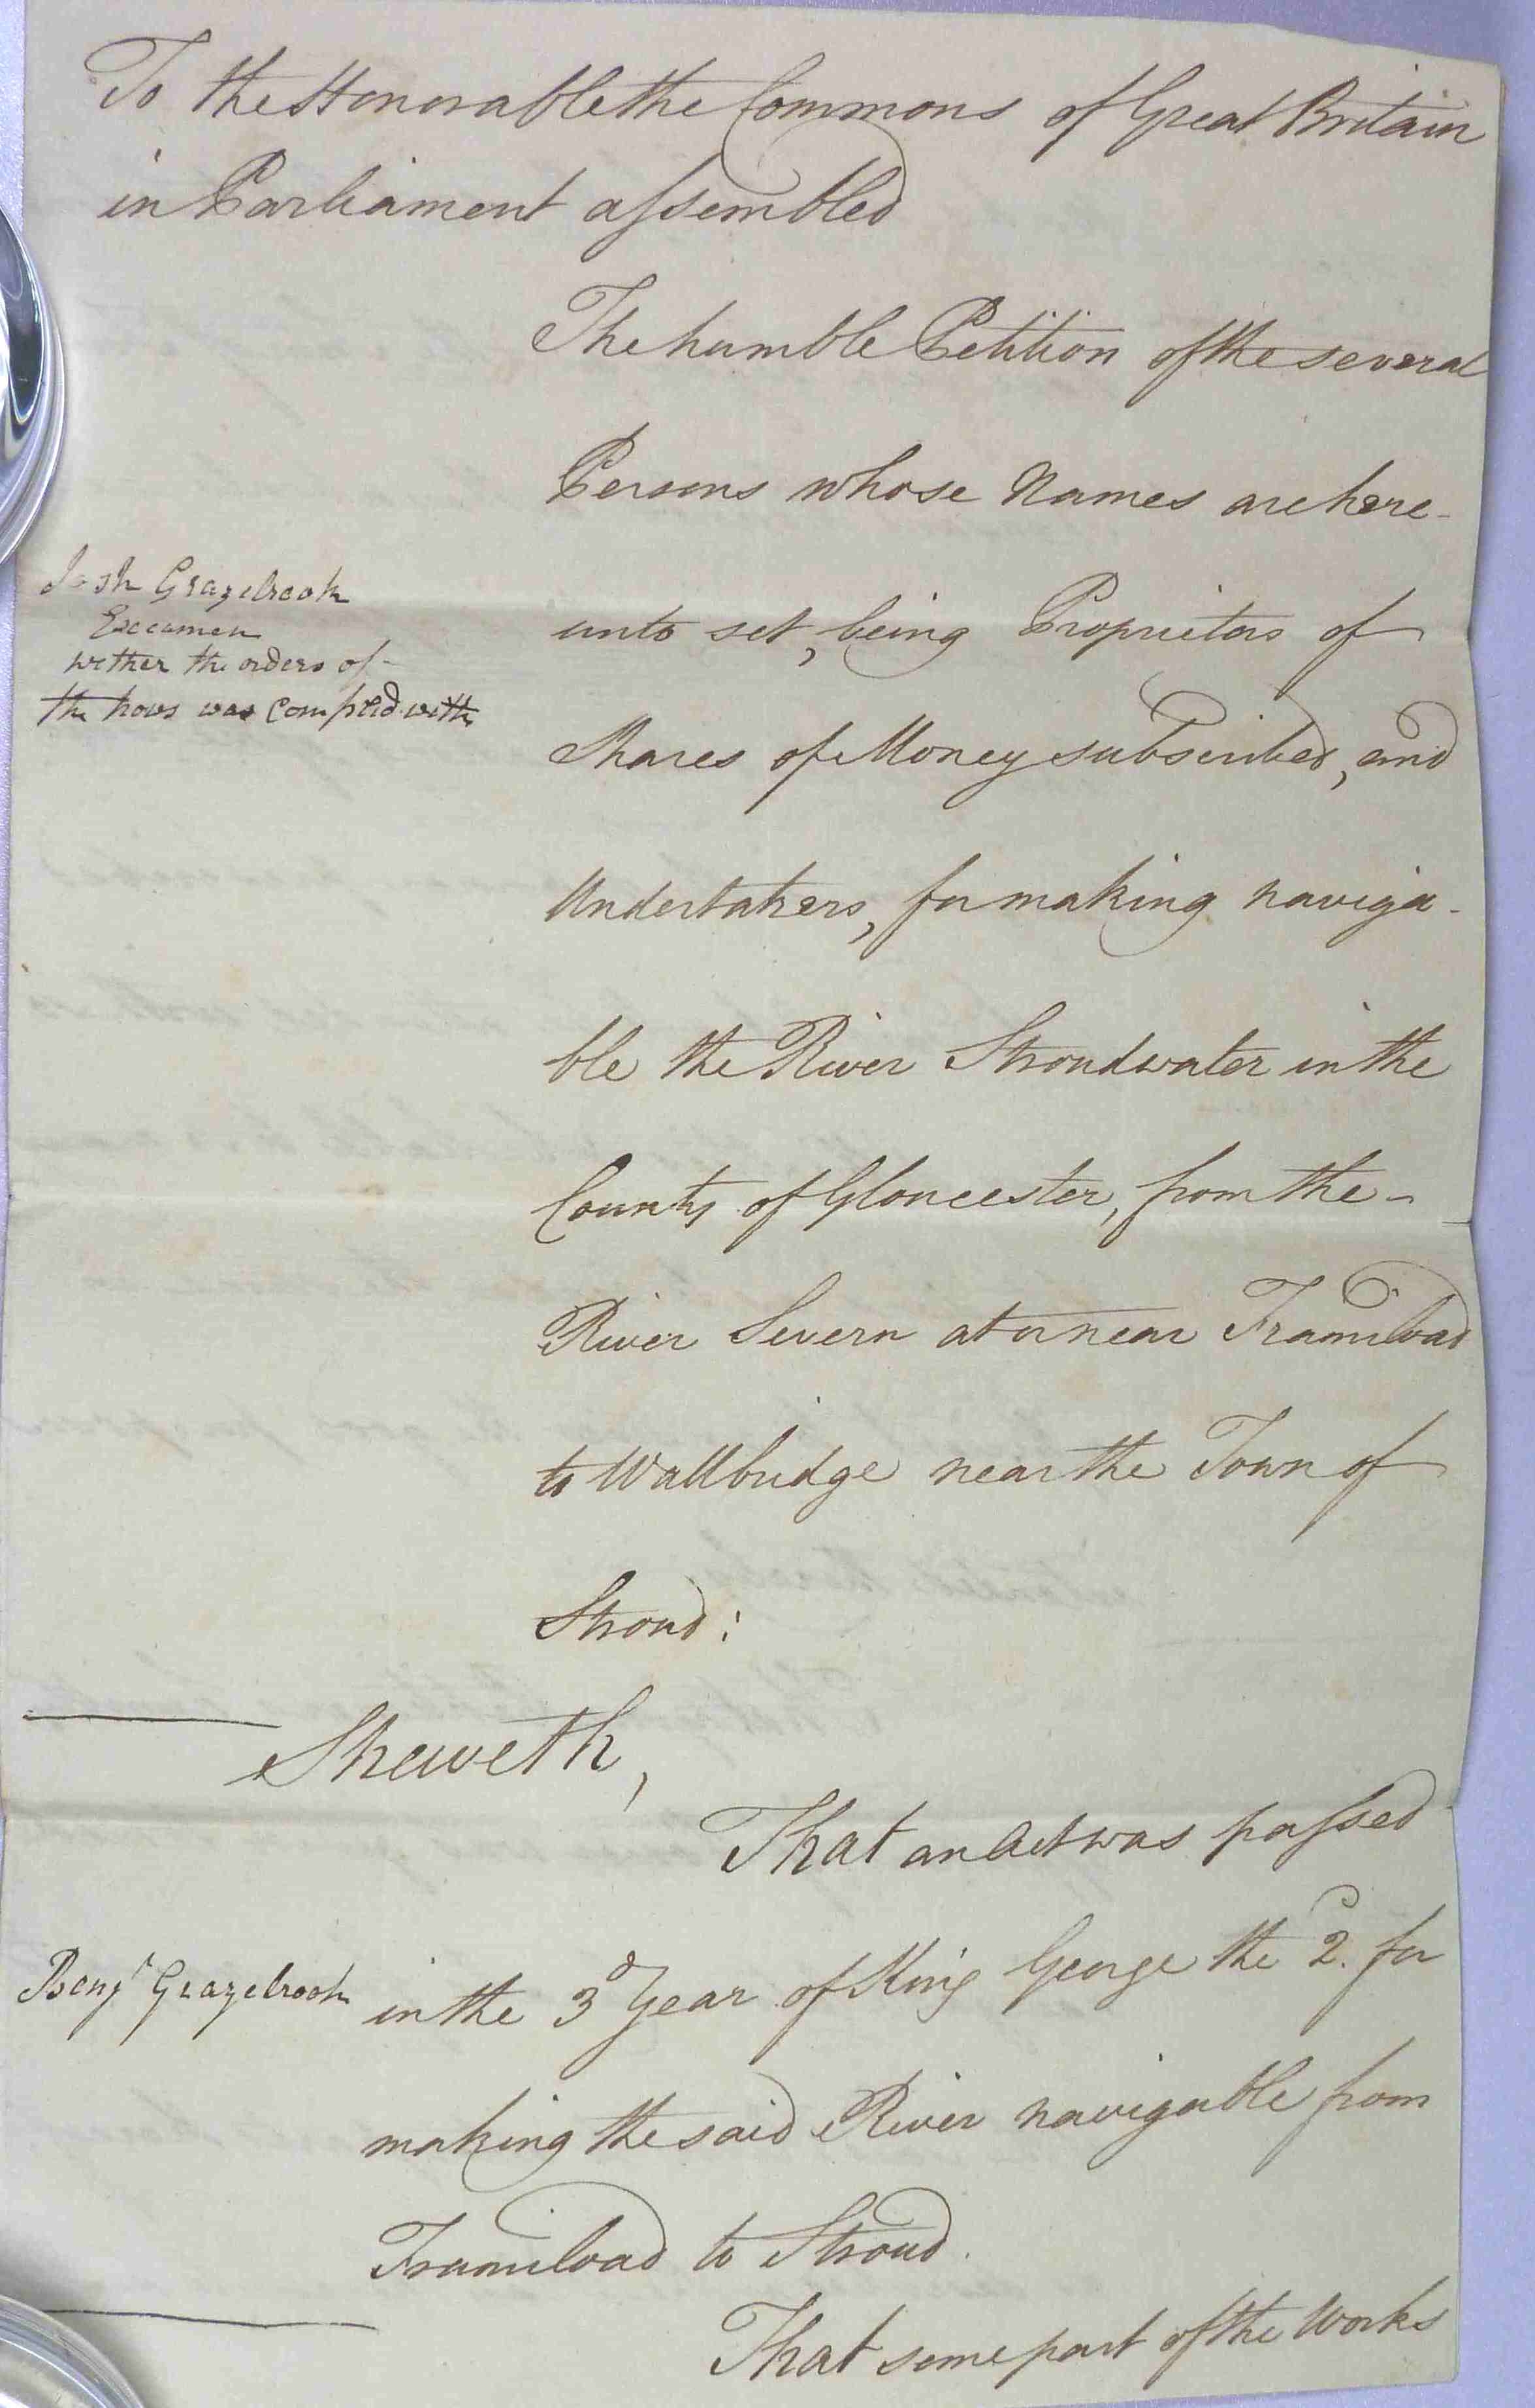 To the Honorable the Commons of Great Britain
in Parliament assembled
The humble Petition of the several
Persons whose Names are here-
unto set, being Proprietors of
Shares of Money subscribed, and
Undertakers, for making naviga-
ble the River Stroudwater in the
County of Gloucester, from the-
River Severn at or near Framiload
to Wallbridge near the Town of
Stroud:
Josh Grazebrook
Excamen
wether the orders of-
the hous was complied with
Sheweth,
That an Act was passed
Benj Grazebrook
in the 3d Year of King George the 2d. for
making the said River navigable from
Framiload to Stroud.
That some part of the Works